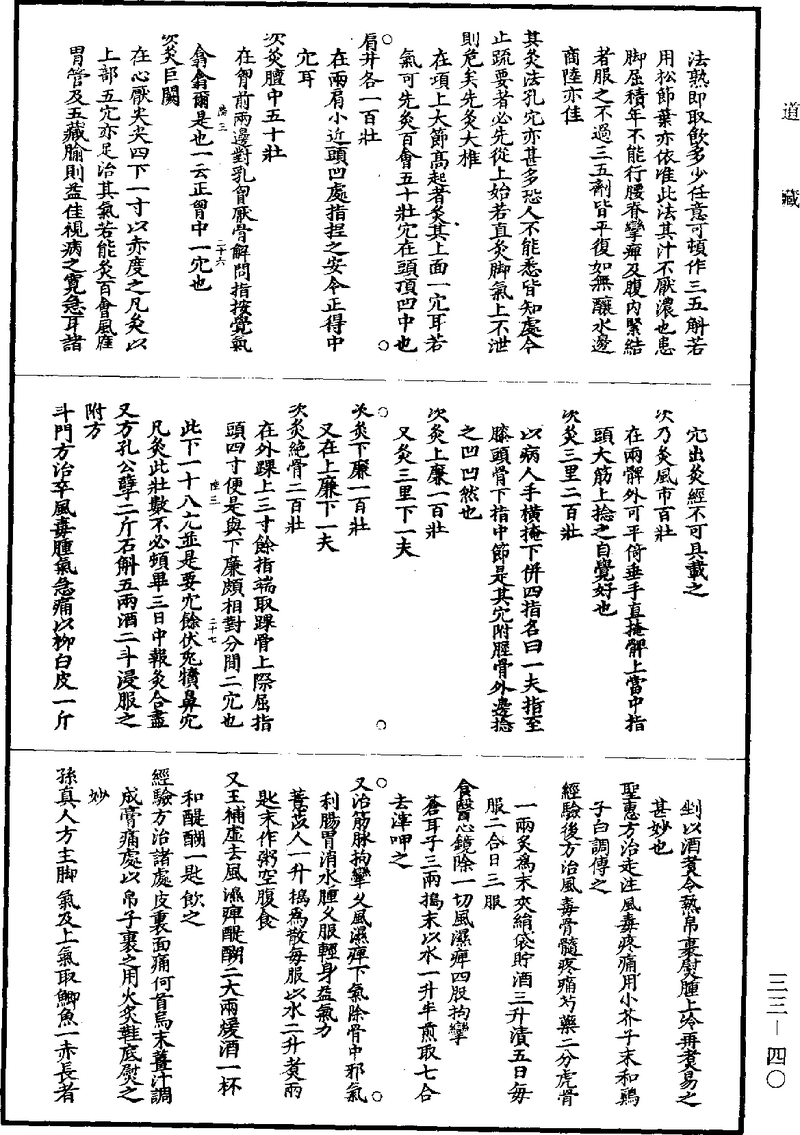 道藏
法熟即取飲多少任意可頓作三五斛若
用松節葉亦依准此法其汁不厭濃也患
脚屈積年不能行腰脊攣痺及腹內緊結
者服之不過三五劑皆平復如無釀水邊
商陸亦佳
其灸法孔穴亦甚多恐人不能悉皆知處今
止疏要者必先從上始若直灸脚氣上不泄
則危矣先灸大椎
在項上大節高起者灸其上面一穴耳若
氣可先灸百會五十壯穴在頭頂凹中也
肩井各一百壯
在兩肩小近頭凹處指捏之安令正得中
穴耳
次灸膻中五十壯
在胷前兩邊對乳胷厭骨解間指按覺氣
翕翕爾是也一云正胷中一穴也
次灸巨闕
在心厭尖尖四下一寸以赤度之凡灸以
上部五穴亦足治其氣若能灸百會風府
胃管及五藏腧則益佳視病之寛急耳諸
穴出灸經不可具載之
次乃灸風市百壯
在兩髀外可平倚垂手直掩髀上當中指
頭大筋上捻之自覺好也
次灸三里二百壯
以病人手橫掩下併四指名曰一夫指至
膝頭骨下指中節是其穴附脛骨外邊捻
之凹凹然也
次灸上廉一百壯
又灸三里下一夫
次灸下廉一百壯
又在上廉下一夫
次灸絕骨二百壯
在外踝上三寸餘指端取踝骨上際屈指
頭四寸便是與下廉頗相對分間二穴也
此下一十八穴並是要穴餘伏兔犢鼻穴
凡灸此壯數不必頓畢三日中報灸合盡
又方孔公孽二斤石斛五兩酒二斗浸服之
附方
斗門方治卒風毒腫氣急痛以柳白皮一斤
剉以酒煑令熱帛裹熨腫上冷再煑易之
甚妙也
聖惠方治走注風毒疼痛用小芥子末和鷄
子白調傅之
經驗後方治風毒骨髓疼痛芍藥二分虎骨
一兩炙爲末夾絹袋貯酒三升漬五日每
服二合日三服
食醫心鏡除一切風濕痺四肢拘攣
蒼耳子三兩搗末以水一升半煎取七合
去滓呷之
又治筋脉拘攣乆風濕痺下氣除骨中邪氣
利腸胃消水腫乆服輕身益氣力
薏苡人一升搗爲散每服以水二升煑兩
匙末作粥空腹食
又主補虛去風濕痺醍醐二大兩煖酒一杯
和醍醐一匙飲之
經驗方治諸處皮裏面痛何首烏末薑汁調
成膏痛處以帛子裹之用火炙鞋底熨之
妙
孫真人方主脚氣及上氣取鯽魚一赤長者
三三－四〇